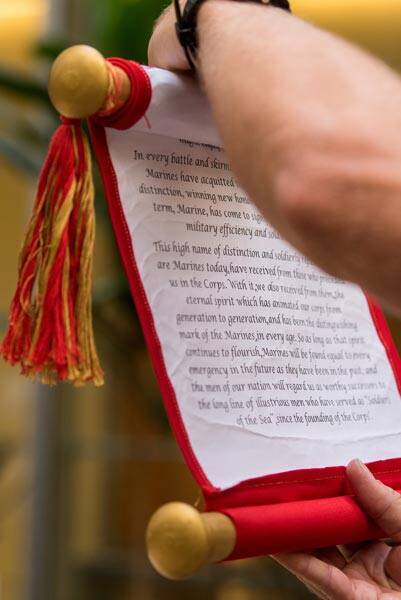 In every battle and skirm
Marines have acquitted
distinction, winning new hono
term, Marine, has come to sig
military efficiency and sol
This high name of distinction and soldierly
are Marines today,have received from those who
us in the Corps. With it,we also received from them,the
eternal spirit which has animated our corps from
generation to generation,and has been the distinguishing
mark of the Marines,in every age. So as long as that spirit
continues to flourish,Marines will be found equal to every
emergency in the future as they have been in the past, and
the men of our nation will regard us as worthy successors to
the long line of illustrious men who have served as "Soldiers
of the Sea",since the founding of the Corps.